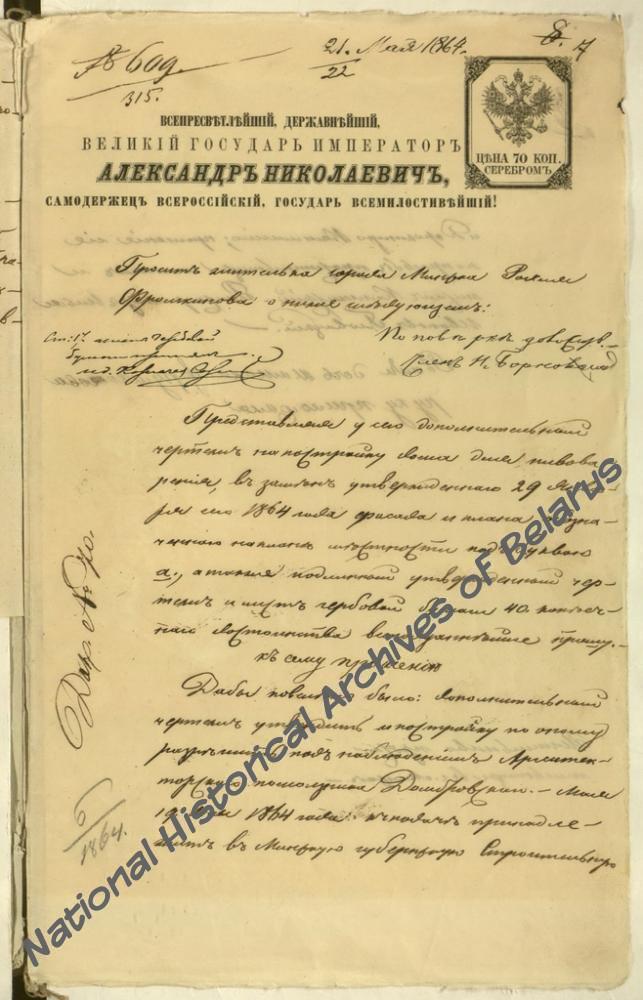 № 609.
315.
21. Мая 1864.
22
8. 7
ВСЕПРЕСВѢТЛѢЙШІЙ, ДЕРЖАВНѢЙШІЙ,
ВЕЛИКІЙ ГОСУДАРЬ ИМПЕРАТОРЪ
АЛЕКСАНДРЪ НИКОЛАЕВИЧЪ,
САМОДЕРЖЕЦЪ ВСЕРОССІЙСКІЙ, ГОСУДАРЬ ВСЕМИЛОСТИВѢЙШІЙ!
ЦѢНА 70 КОП.
СЕРЕБРОМЪ
Проситъ жителька города Минска
Фрумкинова о ниже слѣдующемъ:
гербовой
Представляя у сего дополнительный
чертежъ на постройку дома для пивова
ренія, въ замѣнъ утвержденнаго 29
1864 года фасада и плана
на планѣ мѣстности подъ буквою
а., а также подлинный утвержденный чер-
тежъ и листъ гербовой бумаги 40 копѣеч-
наго достоинства всеподданнѣйше прошу.
къ сему прошенію
Дабы повелѣно было: дополнительный
чертежъ утвердить и постройку по оному
разрѣшить подъ наблюденіемъ Архитек-
торскаго помощника Домбровскаго.— Мая
1864 года. къ подачѣ принадле-
житъ въ Минскую губернскую Строительную
6
1864.
National Historical Archives of Belarus